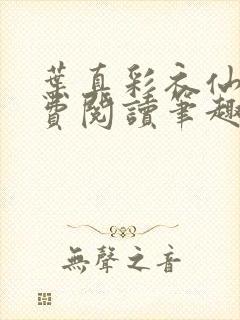 葉真彩衣仙
費閱讀筆趣
無聲之音